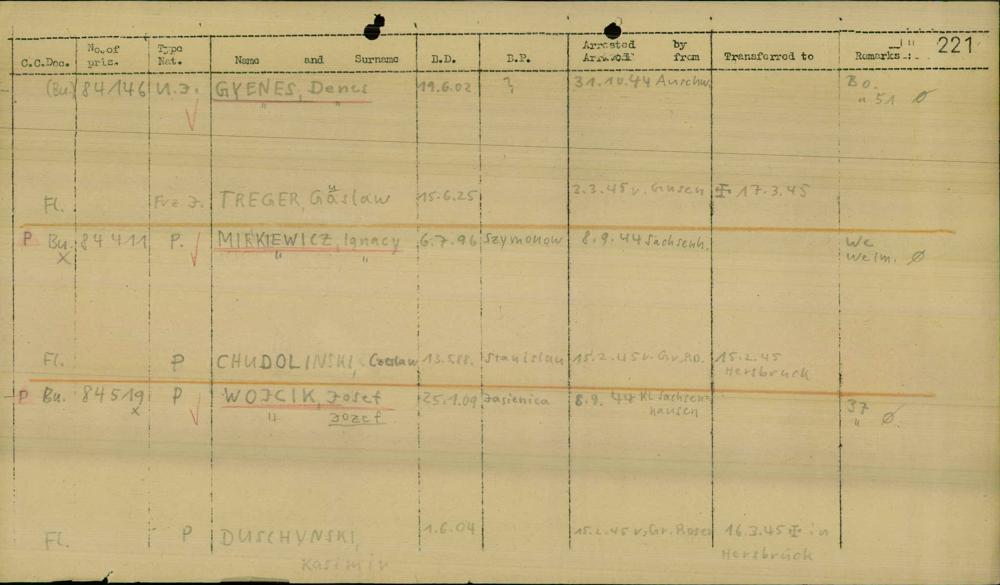 221
C.C.Doc. No. of pris. Type Nat. Name and Surname B.D. B.P. Arrested by Arrived from Transferred to Remarks
(Bu) 84146 U.J. GYENES, Denes 19.6.02 ? 31.10.44 Auschw. Bo.
" " " 51 Ø
Fl. Frz. J. TREGER, Gäslaw 15.6.25 2.3.45 v. Gusen 17.3.45
u
P Bu. 84411 P. MIRKIEWICZ, Ignacy 6.7.96 Szymonow 8.9.44 Sachsenh. We
X " " Weim. Ø
Fl. P CHUDOLINSKI, Czeslaw 13.5.88. Stanislau 15.2.45 v. Gr. Ro. 15.2.45
Hersbruck
P Bu. 84519 P WOJCIK, Josef 25.1.09 Jasienica 8.9.44 KL Sachsen- 37
x " Jozef hausen " Ø
Fl. P DUSCHYNSKI, 1.6.04 15.2.45 v. Gr. Rosen 16.3.45 in
Kasimir Hersbrück